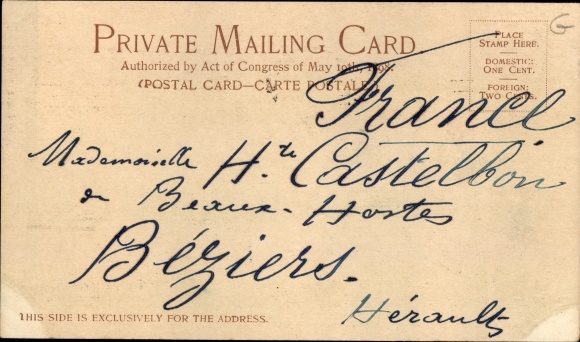 PRIVATE MAILING CARD.
Authorized by Act of Congress of May 19th, 1898.
(POSTAL CARD—CARTE POSTALE)
PLACE
STAMP HERE.
DOMESTIC:
ONE CENT.
FOREIGN:
TWO CENTS.
G
France
Mademoiselle Hte Castelbon
de Beaux-Hostes
Béziers.
Hérault
THIS SIDE IS EXCLUSIVELY FOR THE ADDRESS.